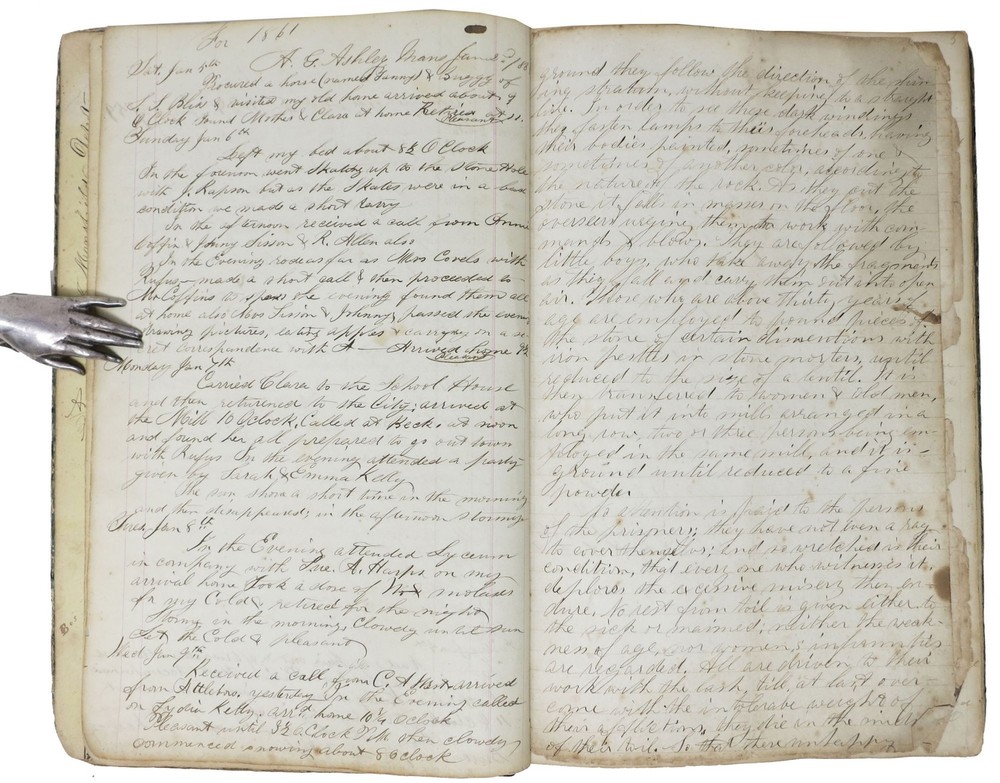 For 1861
A. G. Ashley Mans Jan
Sat. Jan 5th
Procured a horse (named Fanny) & Buggy of
S. S. Bliss & visited my old home arrived about 9
O Clock found Mother & Clara at home Retired
Pleasant
Sunday Jan 6th
Left my bed about 8½ O Clock
In the forenoon went Skating up to the Stone
with J. Rapson but as the Skates were in a bad
condition we made a short tarry
In the afternoon received a call from Annie
Coffin & Johny Sisson & R. Allen also
In the Evening rode as far as Mrs Covels with
Rufus, made a short call & then proceeded to
Mr Coffins to spend the evening found them all
at home also Mrs Sisson & Johnny, passed the evening
drawing pictures, eating apples & carrying on a se-
cret correspondence with A Arrived home
Pleasant
Monday Jan 7th
Carried Clara to the School House
and then returned to the City; arrived at
the Mill 10 O'clock, Called at Becks at noon
and found her all prepared to go out town
with Rufus In the evening attended a party
given by Sarah & Emma Kelly
The sun shone a short time in the morning
and then disappeared; in the afternoon stormy
Tues. Jan 8th
In the Evening attended Lyceum
in company with A. Harps on my
arrival home took a dose of molasses
for my Cold & retired for the night
Storm in the morning, Clowdy until sun
set the Cold & pleasant
Wed. Jan 9th
Received a call from C. A. West arrived
from Attleboro, yesterday In the Evening called
on Lydia Kelly. arrd home 10¼ O clock
Pleasant until 3½ O Clock P.M. then clowdy
Commenced snowing about 8 O clock
ground they follow the direction of the shin-
ing stratum, without keeping to a straight
line. In order to see these dark windings
they fasten lamps to their foreheads, having
their bodies painted, sometimes of one &
sometimes of another color, according to
the nature of the rock. As they cut the
stone it falls in masses on the floor, the
overseers urging them to work with com-
mands & blows. They are followed by
little boys, who take away the fragments
as they fall and carry them out into the open
air. Those who are above thirty years of
age are employed to pound pieces of
the stone of certain dimentions with
iron pestles in stone mortars, until
reduced to the size of a lentil. It is
then transferred to women & old men,
who put it into mills arranged in a
long row, two or three persons being em-
ployed in the same mill, and it is
ground until reduced to a fine
powder
No attention is paid to the persons
of the prisoners; they have not even a rag
to cover themselves; and so wretched is their
condition, that every one who witnesses it,
deplores the excessive misery they en-
dure. No rest from toil is given either to
the sick or maimed; neither the weak-
ness of age, nor women's infirmities
are regarded. All are driven to their
work with the lash, till, at last over-
come with the intolerable weight of
their afflictions, they die in the midst
of their toil. So that these unhappy